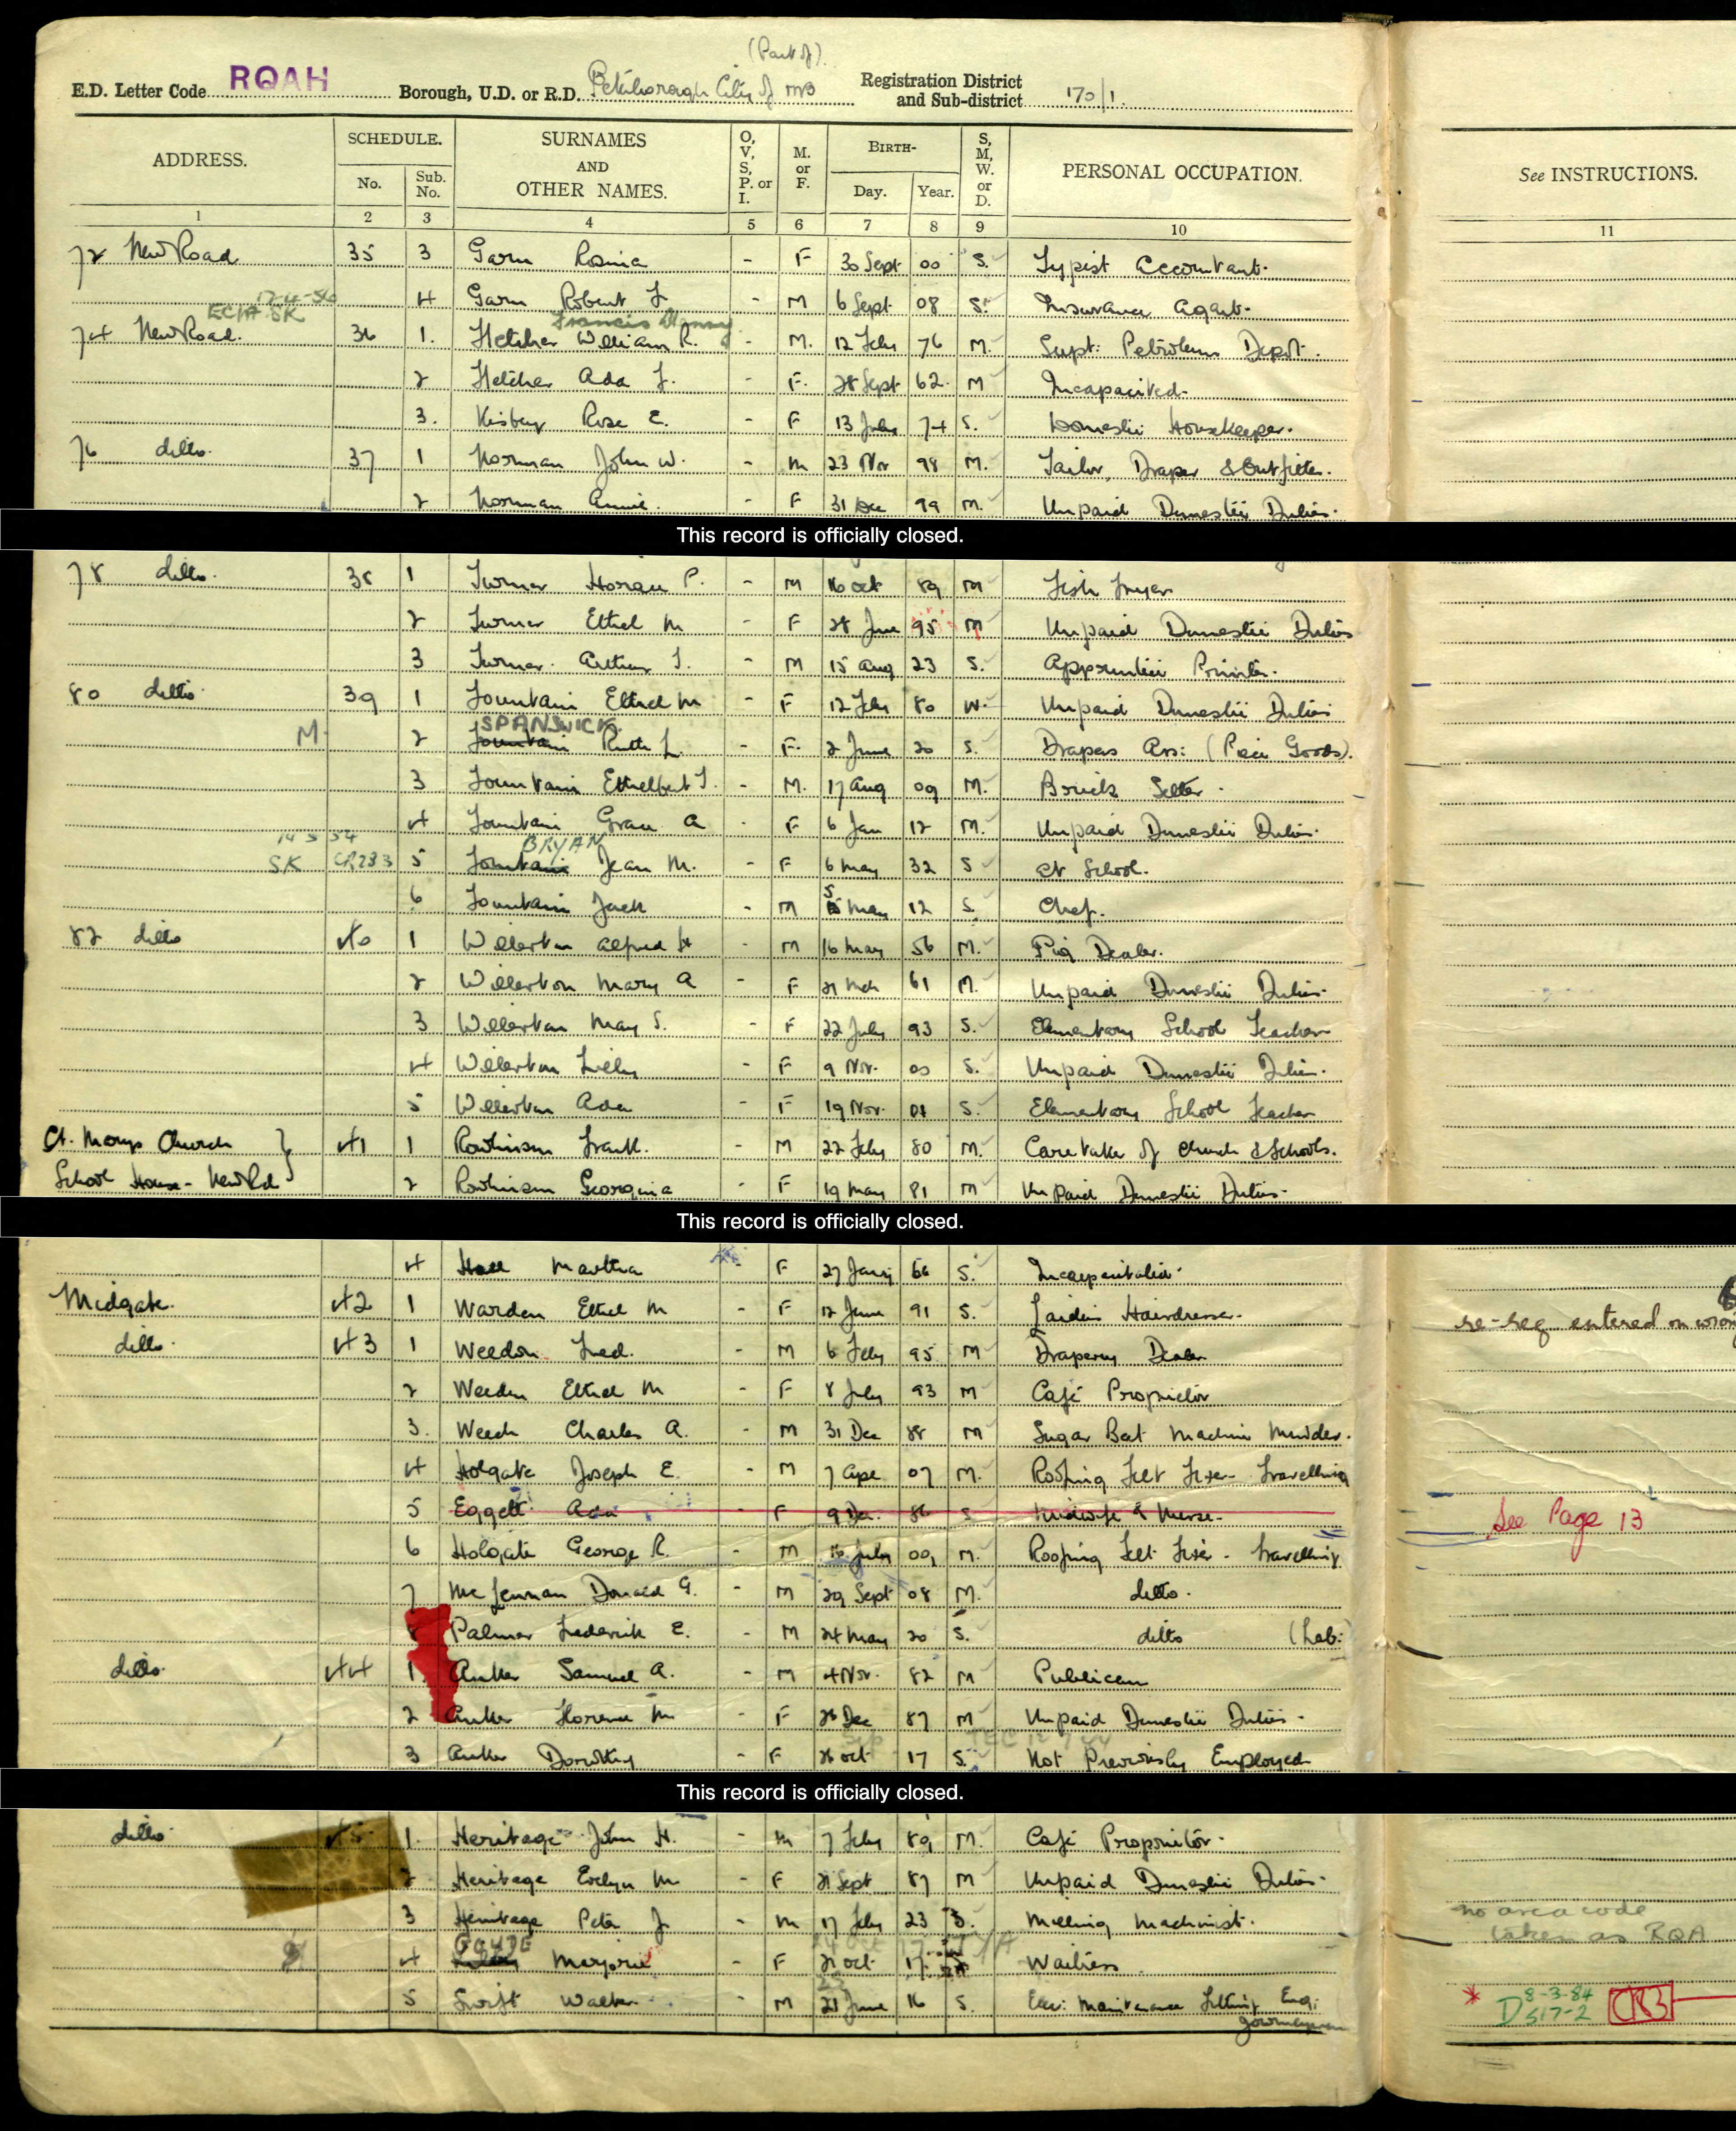 (Part of)
E.D. Letter Code RQAH Borough, U.D. or R.D. Peterborough City of MB Registration District and Sub-district 170/1.
ADDRESS. SCHEDULE. No. Sub. No. SURNAMES AND OTHER NAMES. O, V, S, P. or I. M. or F. BIRTH- Day. Year. S, M, W. or D. PERSONAL OCCUPATION. See INSTRUCTIONS.
1 2 3 4 5 6 7 8 9 10 11
72 New Road 35 3 Garn Rosina - F 30 Sept 00 S. Typist Accountant.
4 Garn Robert - M 6 Sept 08 S. Insurance Agent.
Francis
74 New Road. 36 1. Fletcher William R. - M. 12 Feby 76 M. Supt: Petroleum Depot.
2 Fletcher Ada - F. 28 Sept 62 M Incapacited.
3. Kisbey Rose E. - F 13 July 74 S. Domestic Housekeeper.
76 ditto. 37 1 Norman John W. - M 23 Nov 98 M. Tailor, Draper & Outfitter.
2 Norman Annie. - F 31 Dec 99 M. Unpaid Domestic Duties.
This record is officially closed.
78 ditto. 38 1 Turner Horace P. - M 16 Oct 89 M Fish Fryer
2 Turner Ethel M - F 28 June 95 M Unpaid Domestic Duties
3 Turner. Arthur - M 15 Aug 23 S. Apprentice Printer.
80 ditto. 39 1 Fountain Ethel M - F 12 Feby 80 W. Unpaid Domestic Duties
SPANSWICK
M. 2 Fountain Ruth L. - F. 2 June 20 S. Drapers Ass: (Piece Goods).
3 Fountain Ethelbert - M. 17 Aug 09 M. Brick Setter.
4 Fountain Grace A - F 6 Jan 12 M. Unpaid Domestic Duties.
14 5 54 BRYAN
SK CR283 5 Fountain Jean M. - F 6 May 32 S At School.
6 Fountain Jack - M May 12 S. Chef.
82 ditto 40 1 Willerton Alfred H - M 16 May 56 M. Pig Dealer.
2 Willerton Mary A - F 21 Mch 61 M. Unpaid Domestic Duties.
3 Willerton May S. - F 22 July 93 S. Elementary School Teacher
4 Willerton Lilly - F 9 Nov. 00 S. Unpaid Domestic Duties.
5 Willerton Ada - F 19 Nov. 01 S. Elementary School Teacher
St. Marys Church } 41 1 Rowlinson Frank. - M 22 Feby 80 M. Caretaker of Church & Schools.
School House - New Rd } 2 Rowlinson Georgina - F 19 May 81 M Unpaid Domestic Duties.
This record is officially closed.
4 Hall Martha F 27 66 S. Incapacitated.
Midgate. 42 1 Warden Ethel M - F 12 June 91 S. Ladies Hairdresser. re-reg entered on wron
ditto. 43 1 Weedon Fred. - M 6 Feby 95 M Drapery Dealer
2 Weedon Ethel M - F 8 July 93 M Café Proprietor
3. Weech Charles A. - M 31 Dec 88 M Sugar Beet Machine Minder.
4 Holgate Joseph E. - M 7 Apl 07 M. Roofing Felt Fixer - Travelling
5 Eggett Ada - F 9 Dec. 86 S Midwife & Nurse. See Page 13
6 Holgate George R. - M 16 July 00 M. Roofing Felt Fixer - travelling
7 McLennan Donald G. - M 29 Sept 08 M. ditto.
Palmer Frederick E. - M 24 May 20 S. ditto (Lab:
ditto. 44 1 Anker Samuel A. - M 4 Nov. 82 M Publican
2 Anker Florence M. - F 26 Dec 87 M Unpaid Domestic Duties.
3 Anker Dorothy - F 26 Oct 17 S. Not Previously Employed
This record is officially closed.
ditto. 45 1. Heritage John H. - M 7 Feby 89 M. Café Proprietor.
2 Heritage Evelyn M. - F 21 Sept 87 M Unpaid Domestic Duties.
3 Heritage Peter J. - M 17 Feby 23 S. Milling Machinist. no area code
taken as RQA
4 Marjorie - F 21 Oct 17 Waitress
5 Swift Walter - M 21 June 16 S. Elec: Maintenance Fitting Eng: * 8-3-84
Journeyman DS17-2 CR3